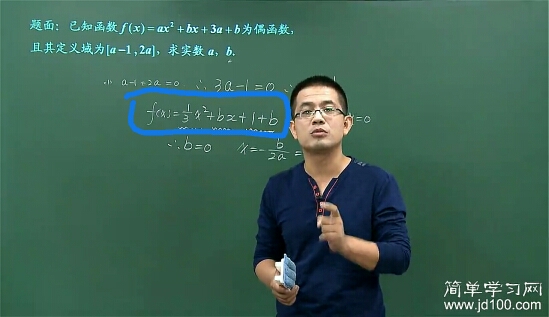 题面：已知函数 f(x)=ax²+bx+3a+b为偶函数，
且其定义域为[a-1,2a]，求实数 a，b.
∵ a-1+2a=0 ∴ 3a-1=0 ∴
f(x)=\frac{1}{3}x²+bx+1+b =0
∴b=0 x=-\frac{b}{2a}=
简单学习网
www.jd100.com